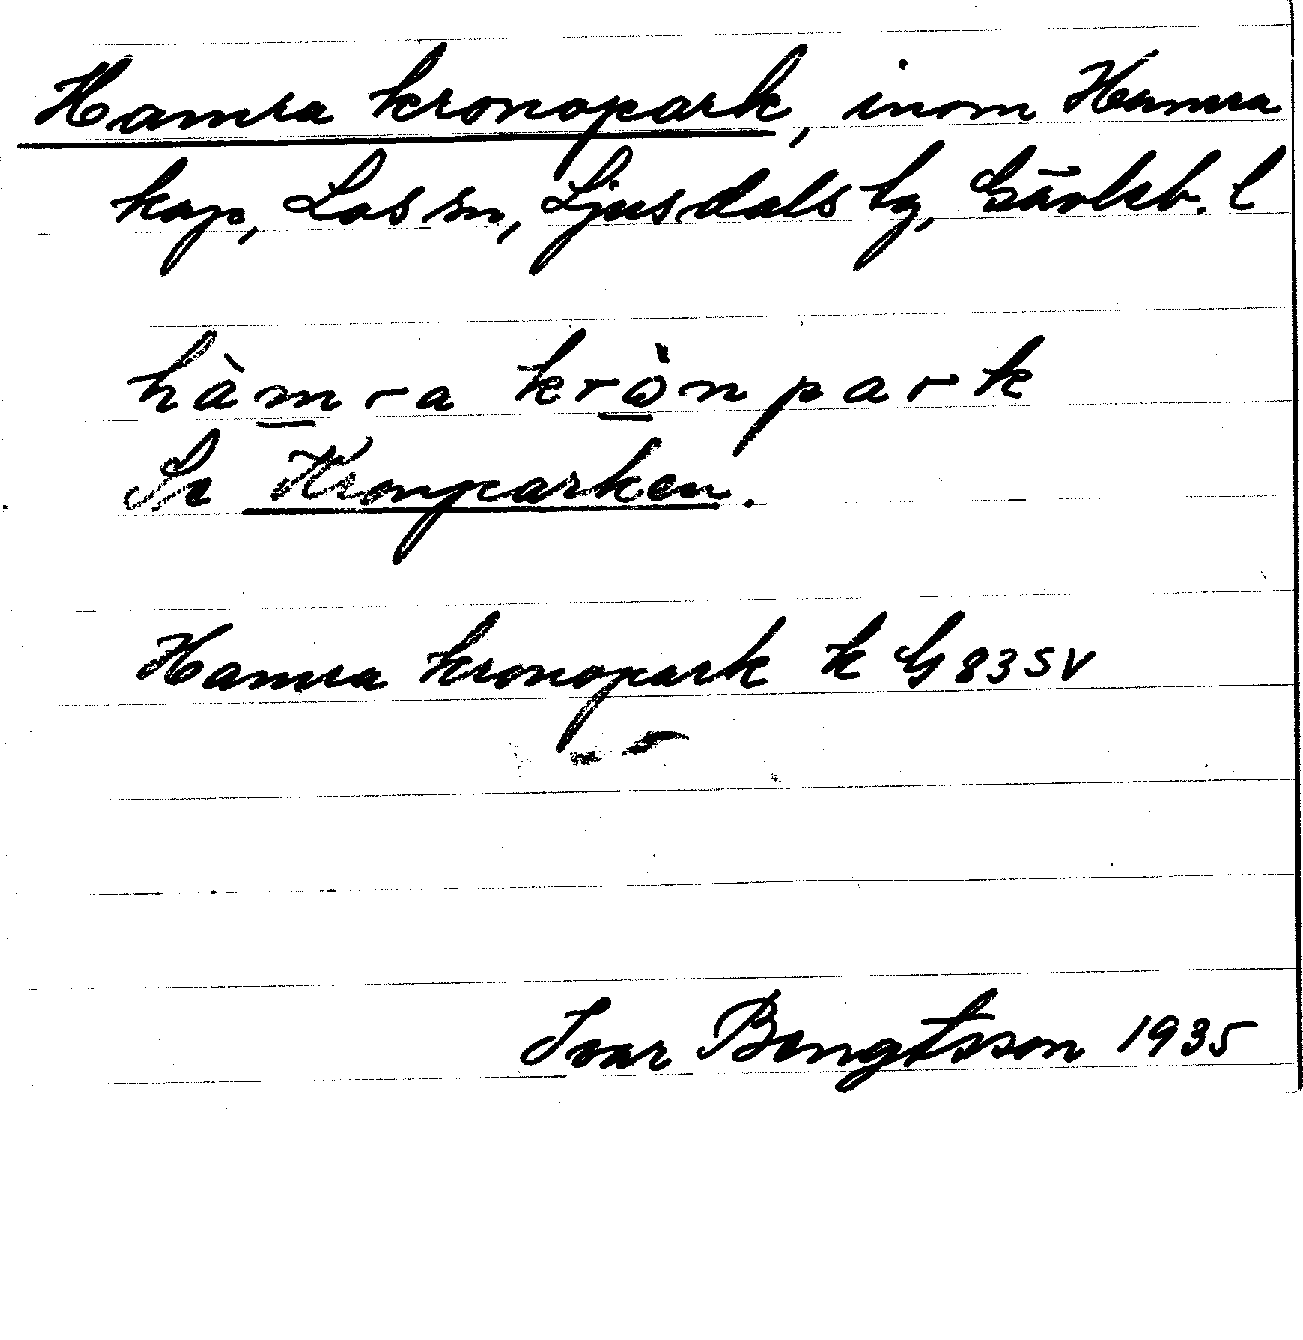 Hamra kronopark, inom Hamra
kap, Los sn, Ljusdals tg, Gävleb. l
hàm̲ra krò̲npark
Se Kronparken.
Hamra kronopark k G 83 SV
Ivar Bengtsson 1935